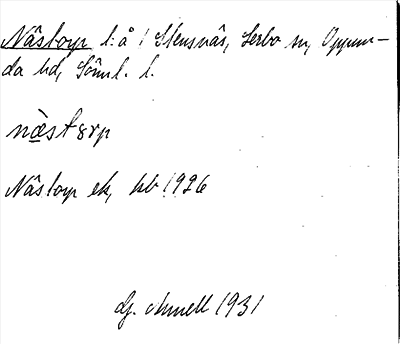 Nâstorp l: å / Stensnäs, Lerbo sn, Oppun-
da hd, Sôml. l.
næstɔrp
Nâstorp ek, kb 1926
Gj. Ahnell 1931